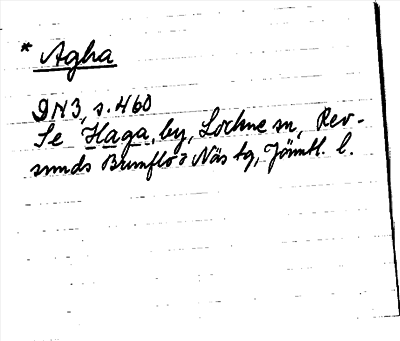 * Agha
DN3, s. 460
Se Haga, by, Lockne sn, Rev-
sunds Brunflo o Näs tg, Jämtl. l.